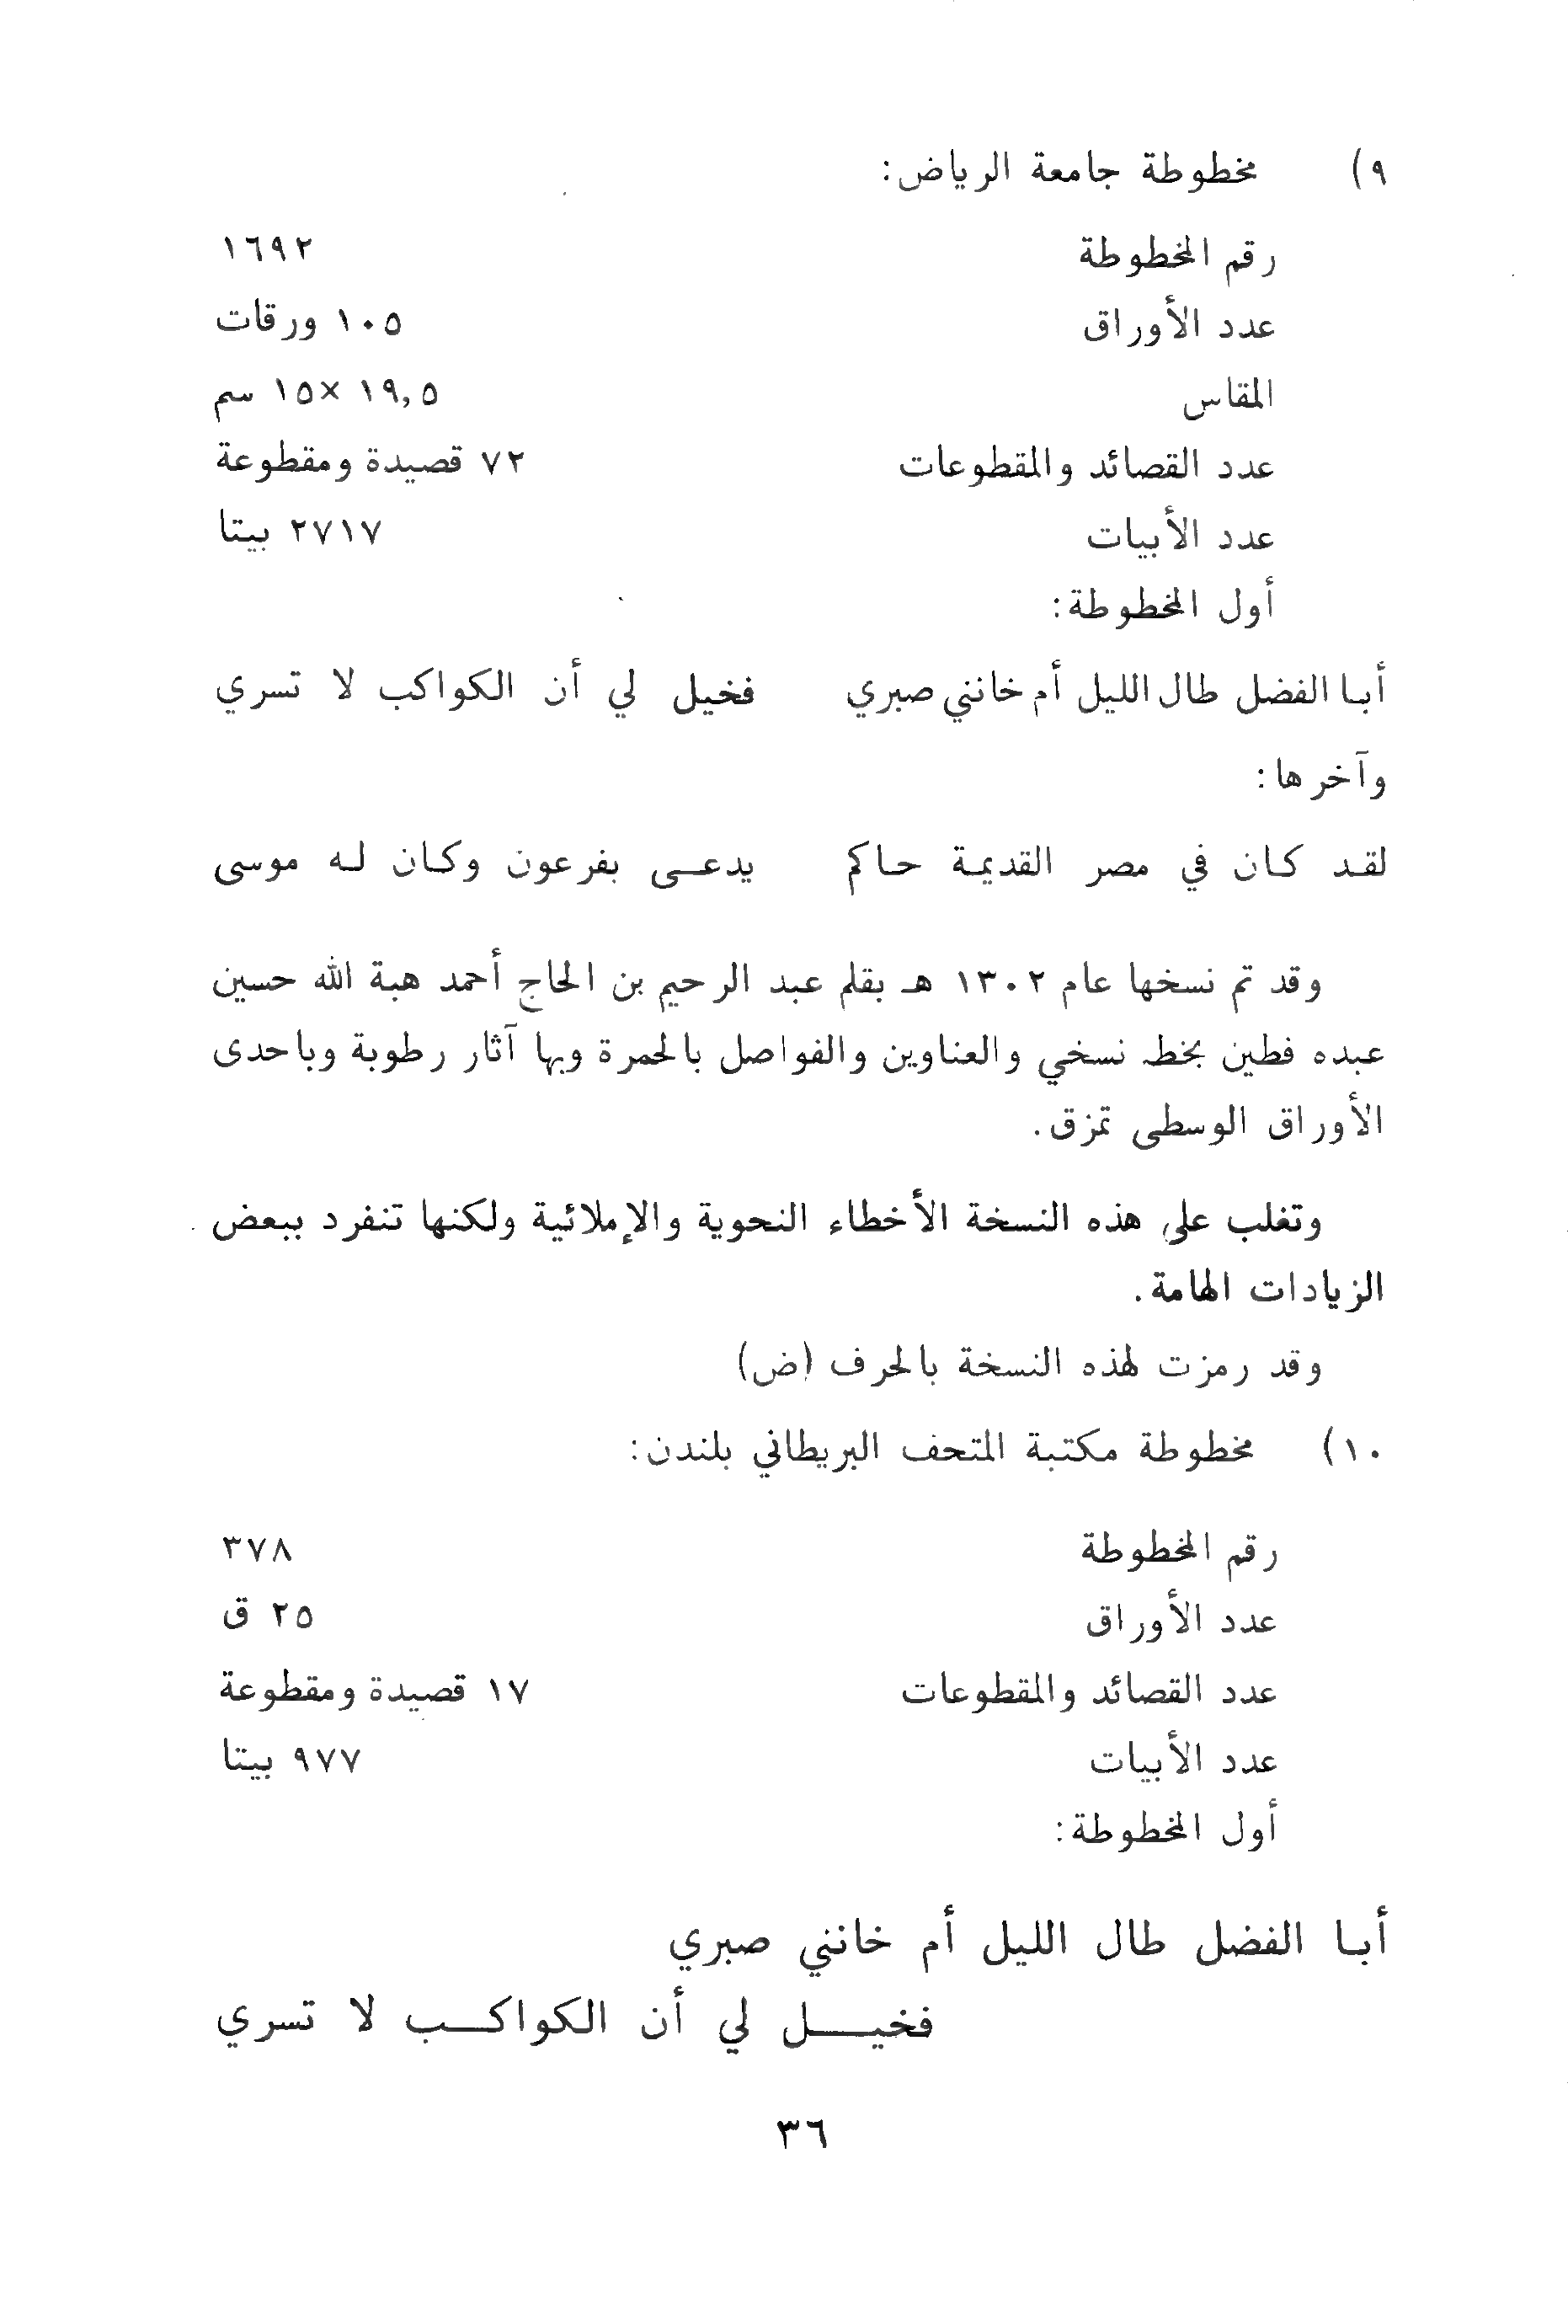 ٩) مخطوطة جامعة الرياض:
رقم المخطوطة ١٦٩٢
عدد الأوراق ١٠٥ ورقات
المقاس ١٩,٥ ×١٥ سم
عدد القصائد والمقطوعات ٧٢ قصيدة ومقطوعة
عدد الأبيات ٢٧١٧ بيتا
أول المخطوطة:
أبا الفضل طال الليل أم خانني صبري فخيل لي أن الكواكب لا تسري
وآخرها:
لقد كان في مصر القديمة حاكم يدعى بفرعون وكان له موسى
وقد تم نسخها عام ١٣٠٢ هـ بقلم عبد الرحيم بن الحاج أحمد هبة الله حسين
عبده فطين بخط نسخي والعناوين والفواصل بالحمرة وبها آثار رطوبة وباحدى
الأوراق الوسطى تمزق.
وتغلب على هذه النسخة الأخطاء النحوية والإملائية ولكنها تنفرد ببعض
الزيادات الهامة.
وقد رمزت لهذه النسخة بالحرف (ض)
١٠) مخطوطة مكتبة المتحف البريطاني بلندن:
رقم المخطوطة ٣٧٨
عدد الأوراق ٢٥ ق
عدد القصائد والمقطوعات ١٧ قصيدة ومقطوعة
عدد الأبيات ٩٧٧ بيتا
أول المخطوطة:
أبا الفضل طال الليل أم خانني صبري
فخيل لي أن الكواكب لا تسري
٣٦